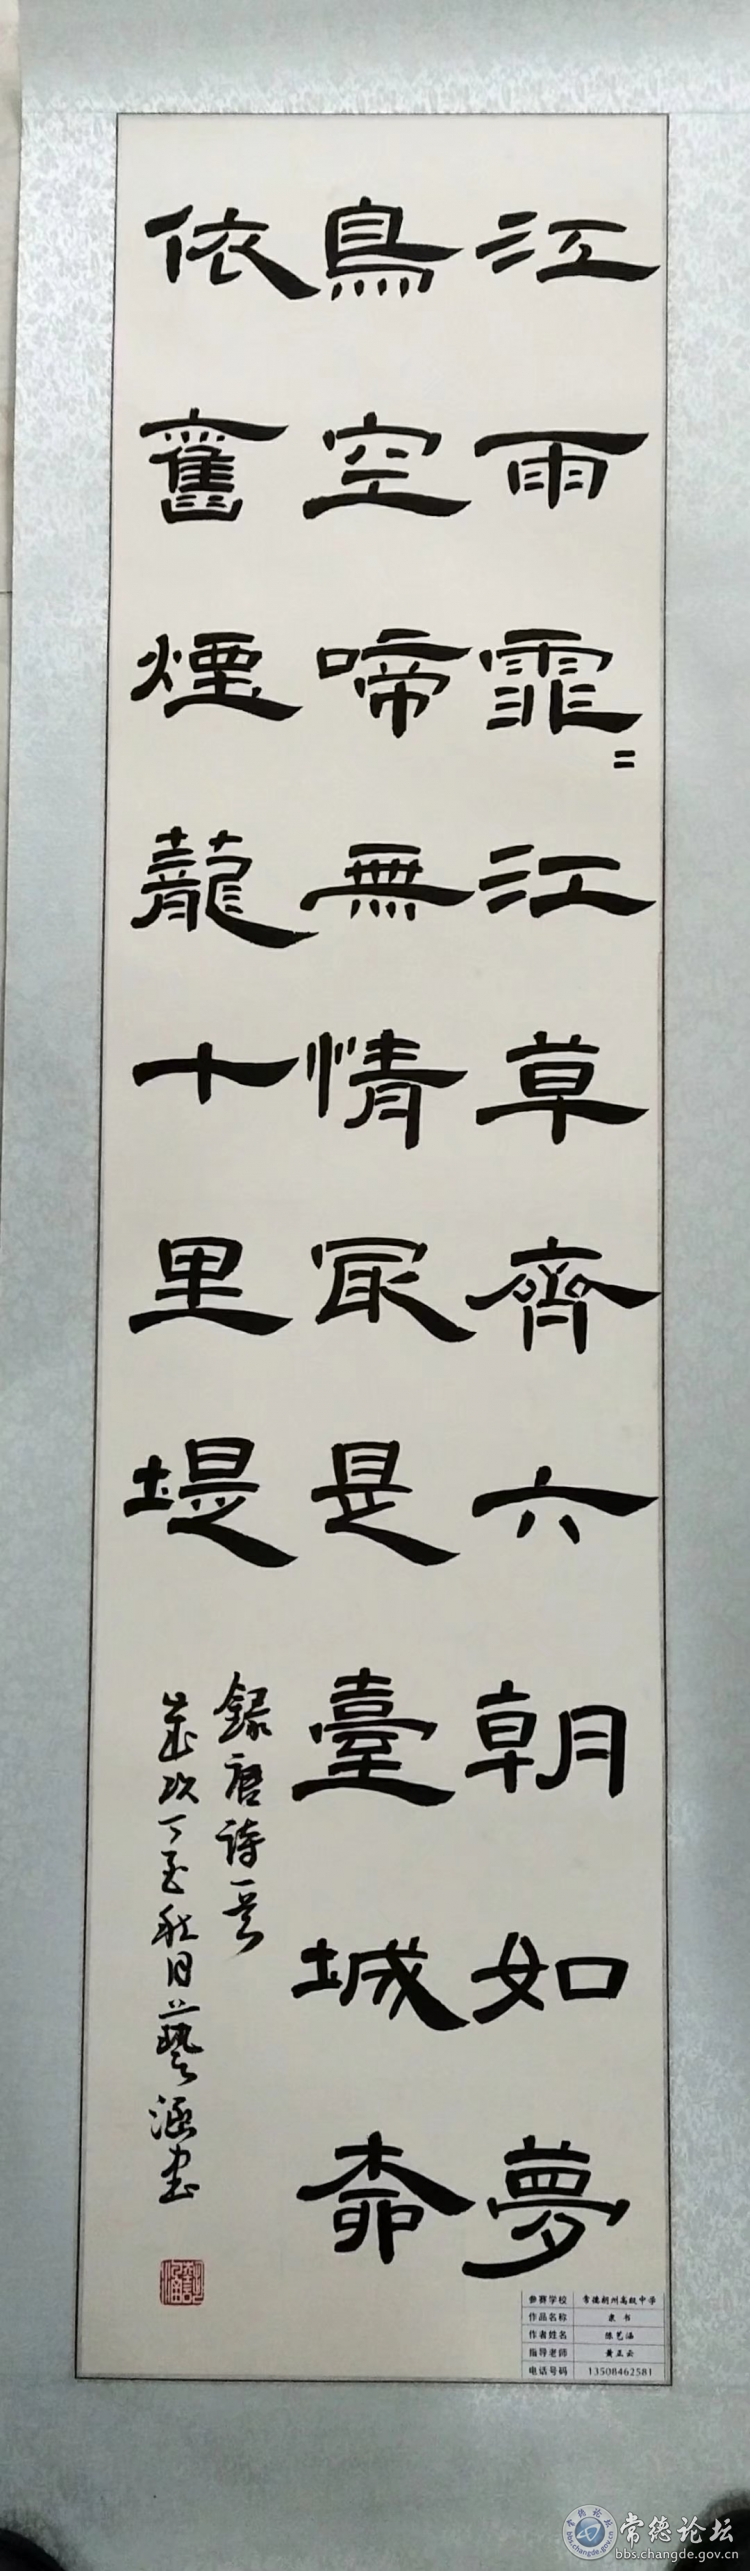 江雨霏〻江草齊六朝如夢
鳥空啼無情冣是臺城柳
依舊煙籠十里堤
錄唐詩一首
歲次丁酉秋月藝涵書
参赛学校 常德朗州高级中学
作品名称 隶书
作者姓名 艺涵
指导老师 黄正云
电话号码 13508462581
常德论坛
常德论坛
bbs.changde.gov.cn